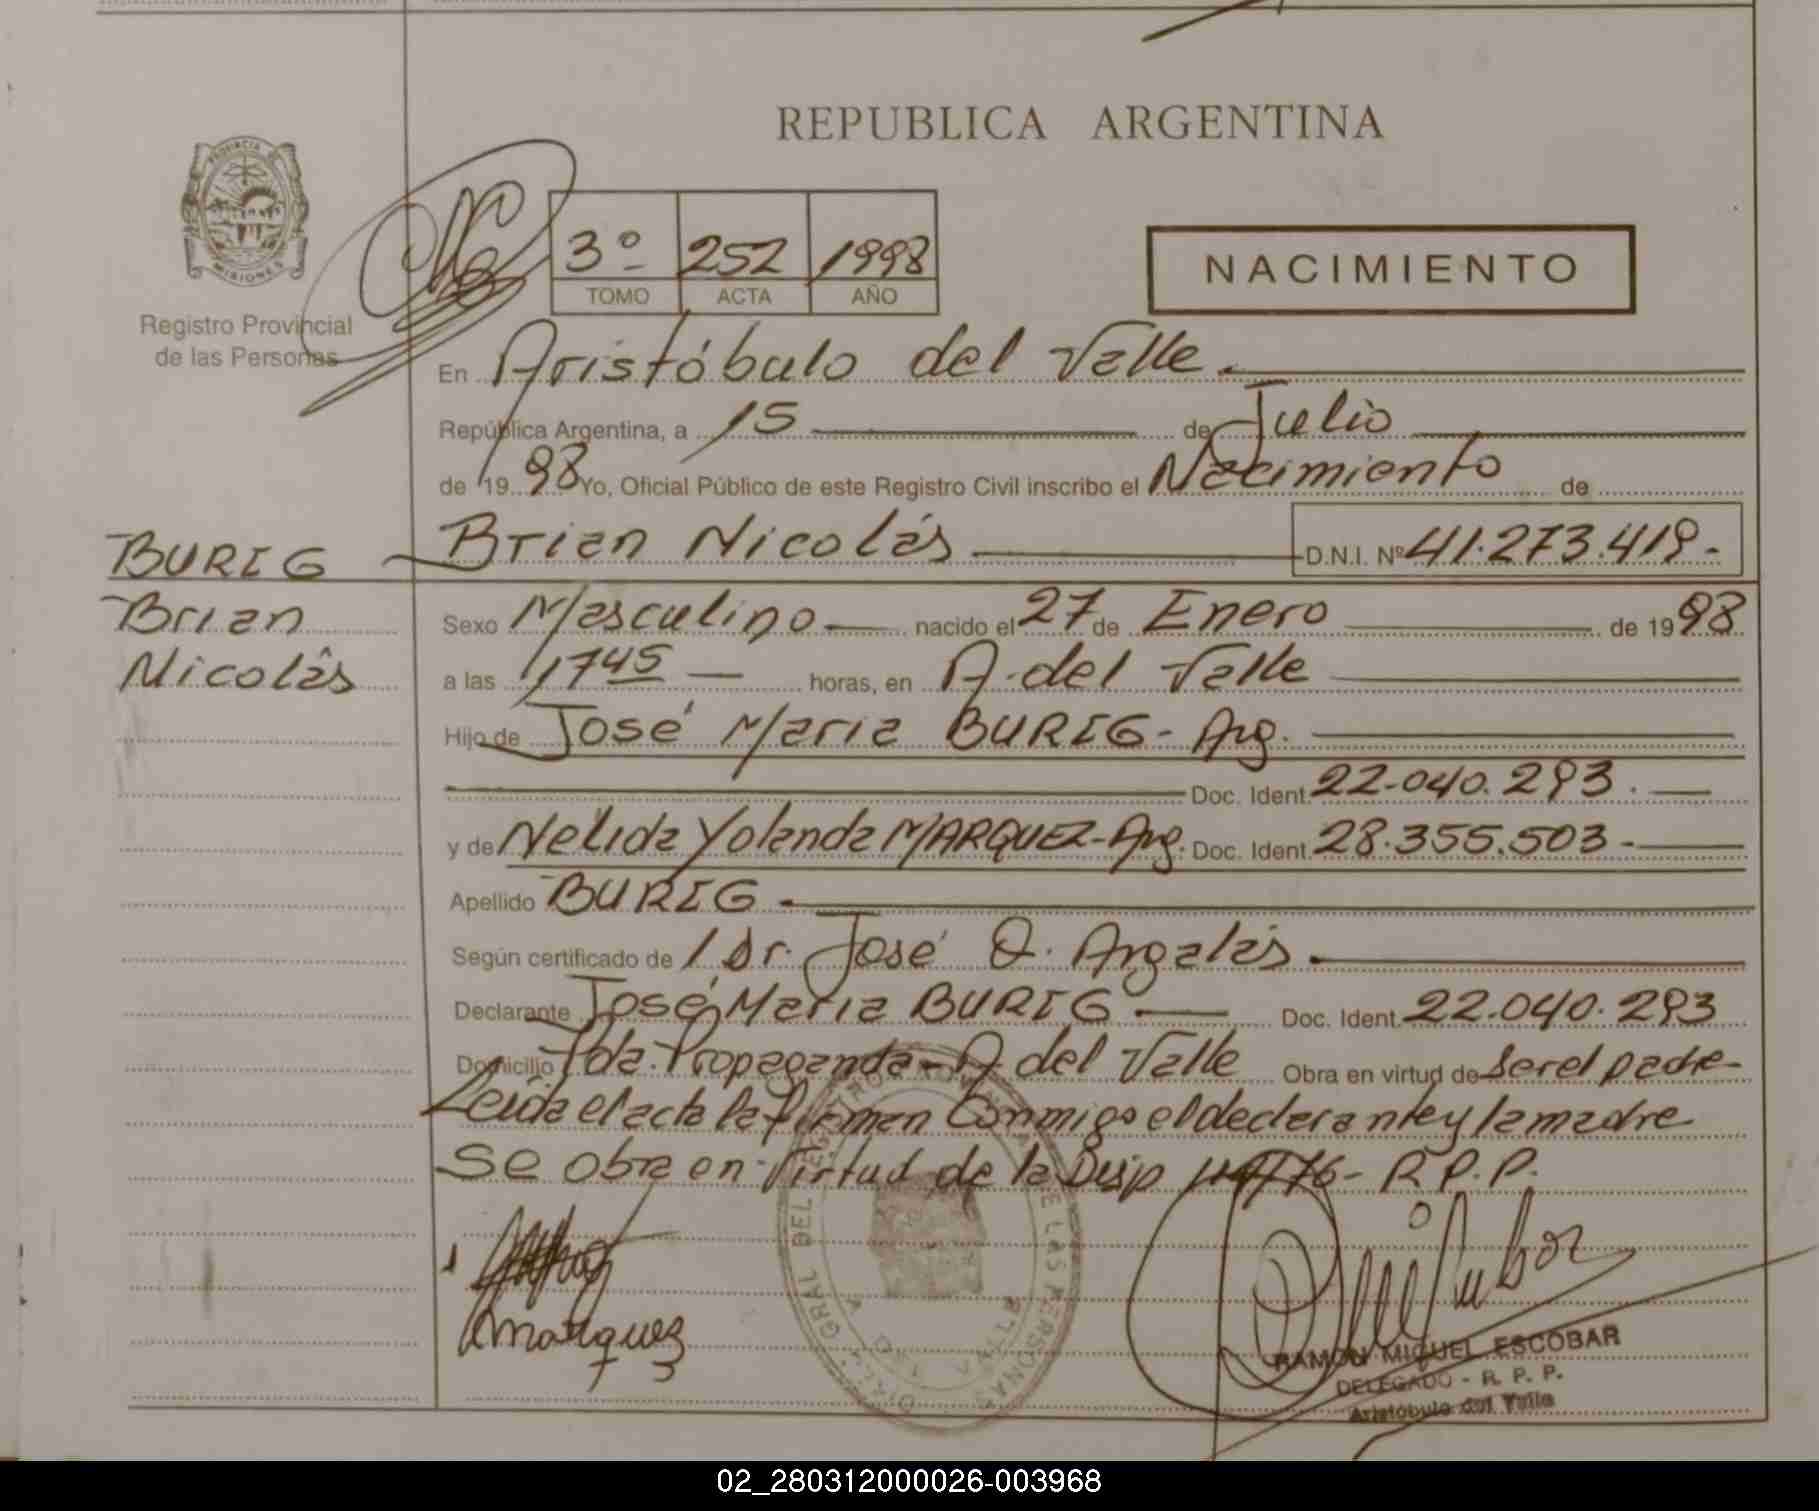 REPUBLICA ARGENTINA
PROVINCIA DE
MISIONES
Registro Provincial
de las Personas
3º 252 1998
TOMO ACTA AÑO
NACIMIENTO
En Aristóbulo del Valle.
República Argentina, a 15 de Julio
de 1998 Yo, Oficial Público de este Registro Civil inscribo el Nacimiento de
BURIG
Brian Nicolás D.N.I. Nº 41.273.419.-
Brian
Nicolás
Sexo Masculino nacido el 27 de Enero de 1998
a las 17 45 horas, en A. del Valle
Hijo de José Maria BURIG - Arg.
Doc. Ident. 22.040.293.
y de Nelida Yolanda MARQUEZ - Arg. Doc. Ident. 28.355.503.-
Apellido BURIG
Según certificado de Dr. José Q. Argalás.
Declarante José Maria BURIG Doc. Ident. 22.040.293
Domicilio Pda. Propaganda - A. del Valle Obra en virtud de ser el padre-
Leida el acta la firman Conmigo el declarante y la madre
Se obra en Virtud de la Disp /76- R.P.P.
Marquez
RAMON MIGUEL ESCOBAR
DELEGADO - R. P. P.
Aristóbulo del Valle
02_280312000026-003968